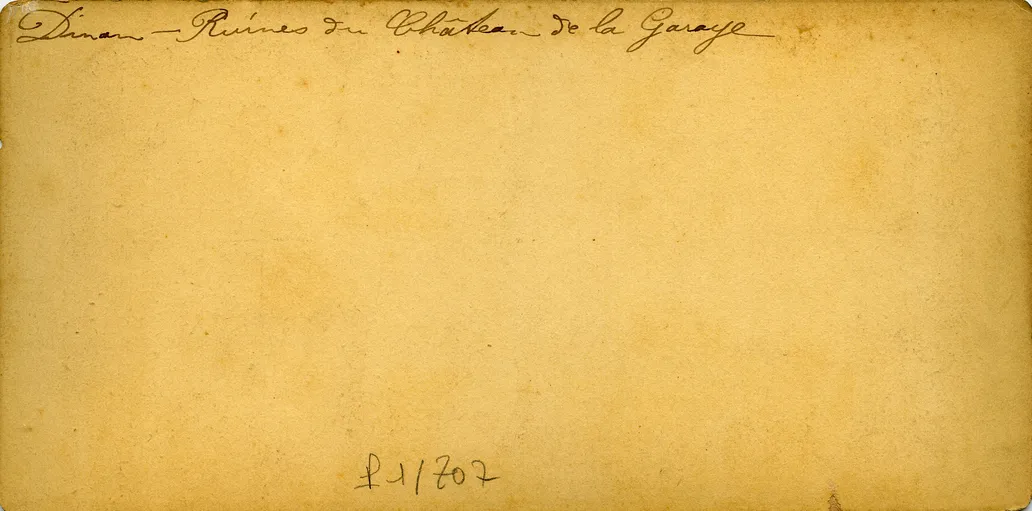 Dinan — Ruines du Château de la Garaye
P 1/707